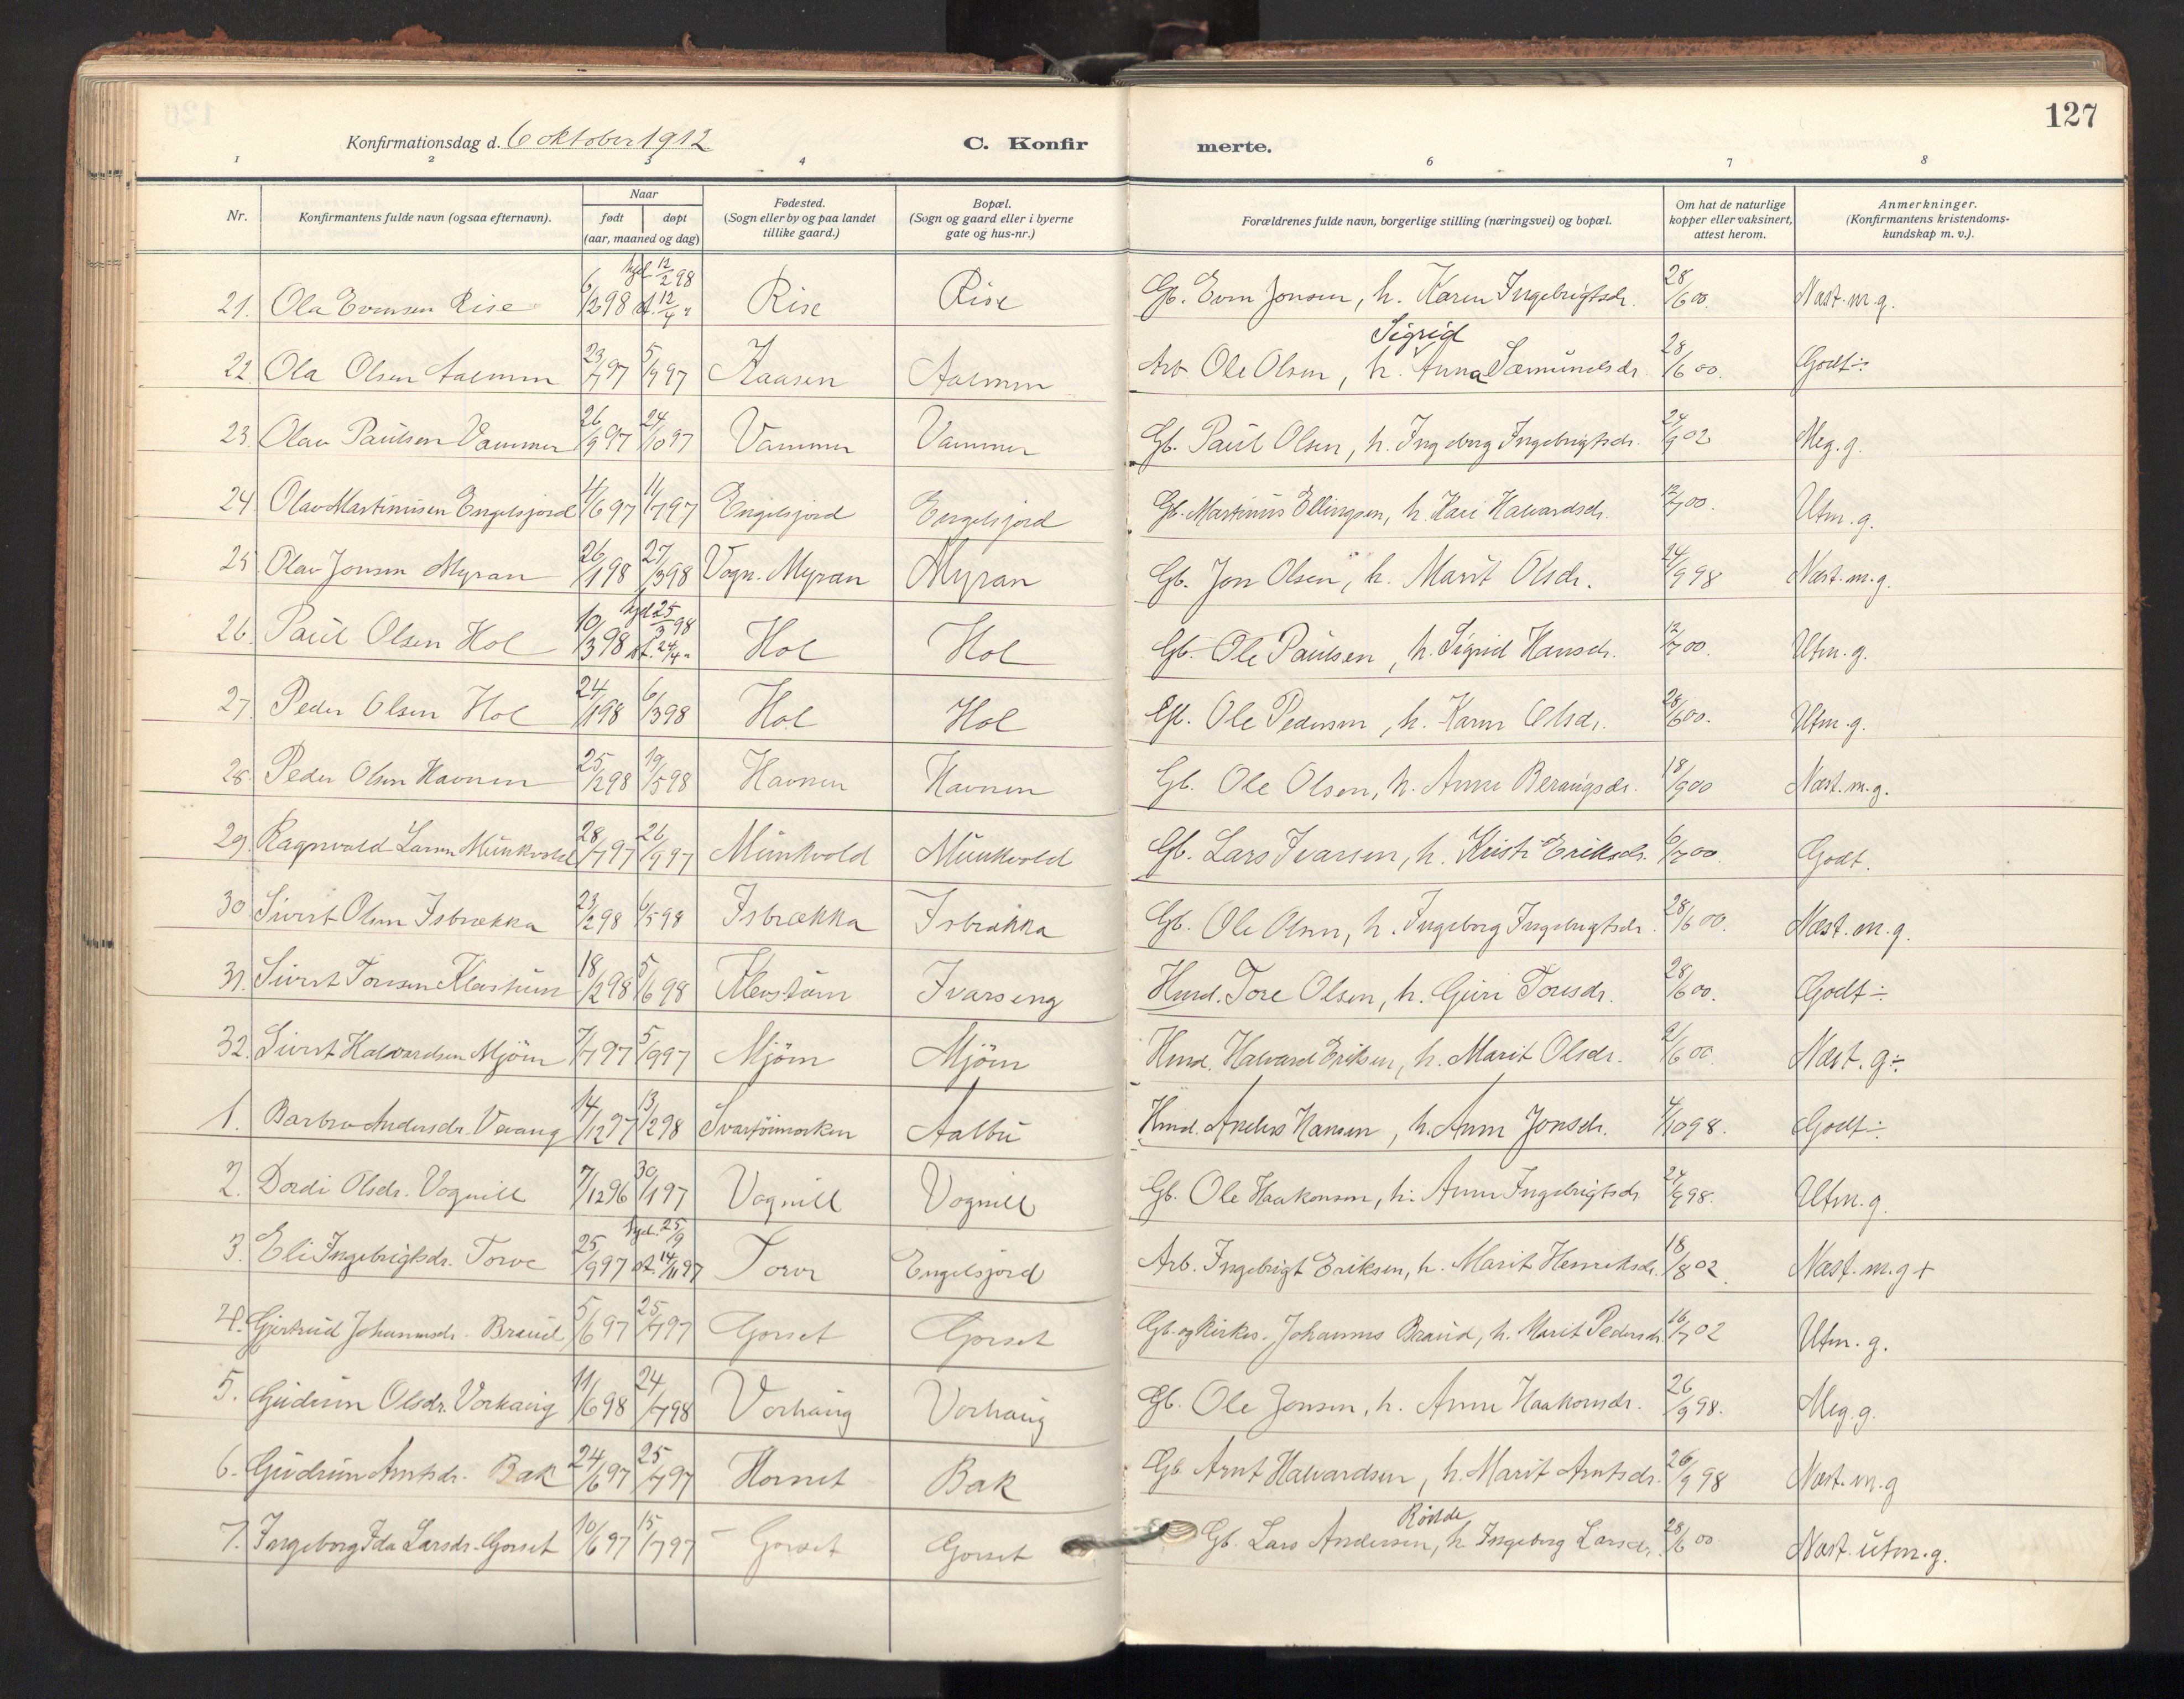 127
Konfirmationsdag d. 6 oktober 1912 C. Konfirmerte.
1 2 3 4 6 7 8
Nr. Konfirmantens fulde navn (ogsaa efternavn). Naar født døpt (aar, maaned og dag) Fødested. (Sogn eller by og paa landet tillike gaard.) Bopæl. (Sogn og gaard eller i byerne gate og hus-nr.) Forældrenes fulde navn, borgerlige stilling (næringsvei) og bopæl. Om hat de naturlige kopper eller vaksinert, attest herom. Anmerkninger. (Konfirmantens kristendomskundskap m. v.).
21. Ola Evensen Rise 6/2 98 hjd. 12/2 98 st. 12/4 " Rise Rise Gb. Even Jonsen, h. Karen Ingebrigtsdr. 28/6 00. Næst. m. g.
22. Ola Olsen Aalmen 23/7 97 5/9 97 Kaasen Aalmen Arb Ole Olsen, h. Sigrid Anna Sæmundsdr 28/6 00. Godt ÷
23. Olav Paulsen Vammer 26/9 97 24/10 97 Vammer Vammer Gb. Paul Olsen, h. Ingeborg Ingebrigtsdr. 24/9 02 Meg. g.
24. Olav Martinusen Engelsjord 4/6 97 11/7 97 Engelsjord Engelsjord Gb. Martinus Ellingsen, h. Kari Halvardsdr. 12/7 00. Utm. g.
25 Olav Jonsen Myran 26/1 98 27/3 98 Vogn. Myran Myran Gb. Jon Olsen, h. Marit Olsdr. 24/9 98 Næst. m. g.
26. Paul Olsen Hol 10/3 98 hjd 25/3 98 st. 24/4 " Hol Hol Gb. Ole Paulsen, h. Sigrid Hansdr. 12/7 00. Utm. g.
27. Peder Olsen Hol 24/1 98 6/3 98 Hol Hol Gb. Ole Pedersen, h. Karen Olsdr. 28/6 00. Utm. g.
28. Peder Olsen Havnen 25/2 98 19/5 98 Havnen Havnen Gb. Ole Olsen, h. Anne Beraugsdr. 18/9 00 Næst. m. g.
29. Ragnvald Larsen Munkvold 28/7 97 26/9 97 Munkvold Munkvold Gb. Lars Ivarsen, h. Kristi Eriksdr. 6/7 00 Godt.
30 Sivert Olsen Isbrækka 23/2 98 6/5 98 Isbrækka Isbrækka Gb. Ole Olsen, h. Ingeborg Ingebrigtsdr. 28/6 00. Næst. m. g.
31. Sivert Toresen Klevstuen 18/2 98 5/6 98 Klevstuen Ivarseng Husmd. Tore Olsen, h. Guri Toresdr. 28/6 00. Godt ÷
32. Sivert Halvardsen Mjøen 7/7 97 5/9 97 Mjøen Mjøen Husmd. Halvard Eriksen, h. Marit Olsdr. 2/6 00. Næst. g ÷
1. Barbro Andersdr. Vevang 14/12 97 13/2 98 Svartømorken Aalbu Husmd. Anders Hansen, h. Anne Jonsdr. 4/10 98. Godt ÷
2. Dordi Olsdr. Vognill 7/12 96 30/1 97 Vognill Vognill Gb. Ole Haakonsen, h. Anne Ingebrigtsdr. 24/9 98. Utm. g.
3. Eli Ingebrigtsdr. Torve 25/9 97 hjd. 25/9 st. 14/11 97 Torve Engelsjord Arb. Ingebrigt Eriksen, h. Marit Henriksdr. 18/8 02. Næst. m. g +
4. Gjertrud Johannesdr. Braud 5/6 97 25/7 97 Gorset Gorset Gb. og kirkes. Johannes Braud, h. Marit Pedersdr. 16/7 02 Utm. g.
5. Gudrun Olsdr. Vorhaug 11/6 98 24/7 98 Vorhaug Vorhaug Gb. Ole Jonsen, h. Anne Haakonsdr. 26/9 98. Meg. g.
6. Gudrun Arntsdr. Bak 24/6 97 25/7 97 Hornet Bak Gb Arnt Halvardsen, h. Marit Arntsdr. 26/9 98 Næst. m. g
7. Ingeborg Ida Larsdr. Gorset 10/6 97 15/7 97 Gorset Gorset Gb. Lars Andersen, h Ingeborg Larsdr. 28/6 00 Næst. utm. g.